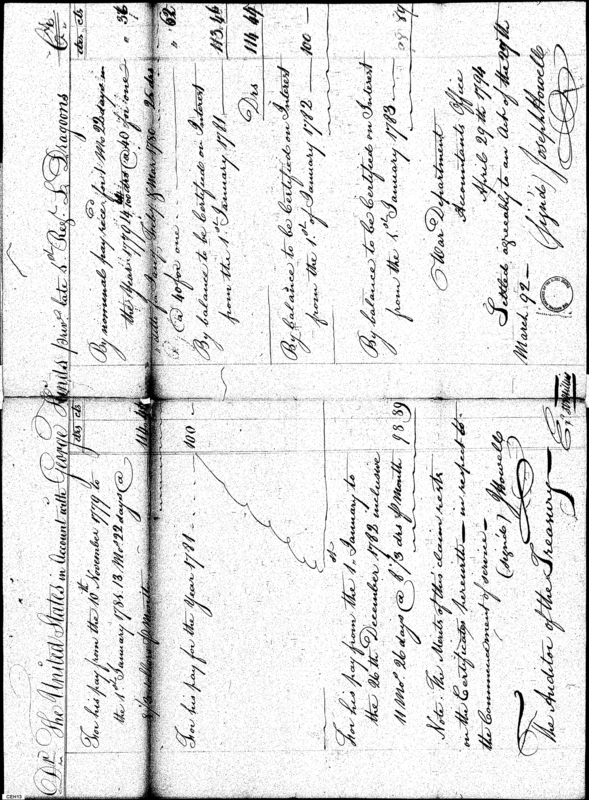 Dr The United States in Account with George Hinds priv.e late 4.th Reg.t L. Dragoons Cr
dlrs cts
For his pay from the 10th November 1779 to
the 1st January 1781. 13 Mos 22 days @
8 1/3 dlrs p Month 114 44
For his pay for the Year 1781 100
For his pay from the 1st January to
the 26th December 1782 inclusive
11 Mos 26 days @ 8 1/3 drs p Month 98 89
Note. The Merits of this claim rests
on the Certificates herewith — in respect to
the Commencement of service —
(signed) JHowell
The Auditor of the Treasury
dlrs cts
By nominal pay rec'd for 1 Mo 22 days in
the Year 1779 @ 40 for one " 36
@ 40 for one " 62
By balance to be Certified on Interest
from the 1st January 1781 113.46
Drs 114 44
By balance to be Certified on Interest
from the 1st of January 1782 100 —
By balance to be Certified on Interest
from the 1st January 1783 98 89
War Department
Accountants Office
April 29th 1794
Settled agreeably to an Act of the 27th
March. 92 —
(Signed) Joseph Howell
CEH13